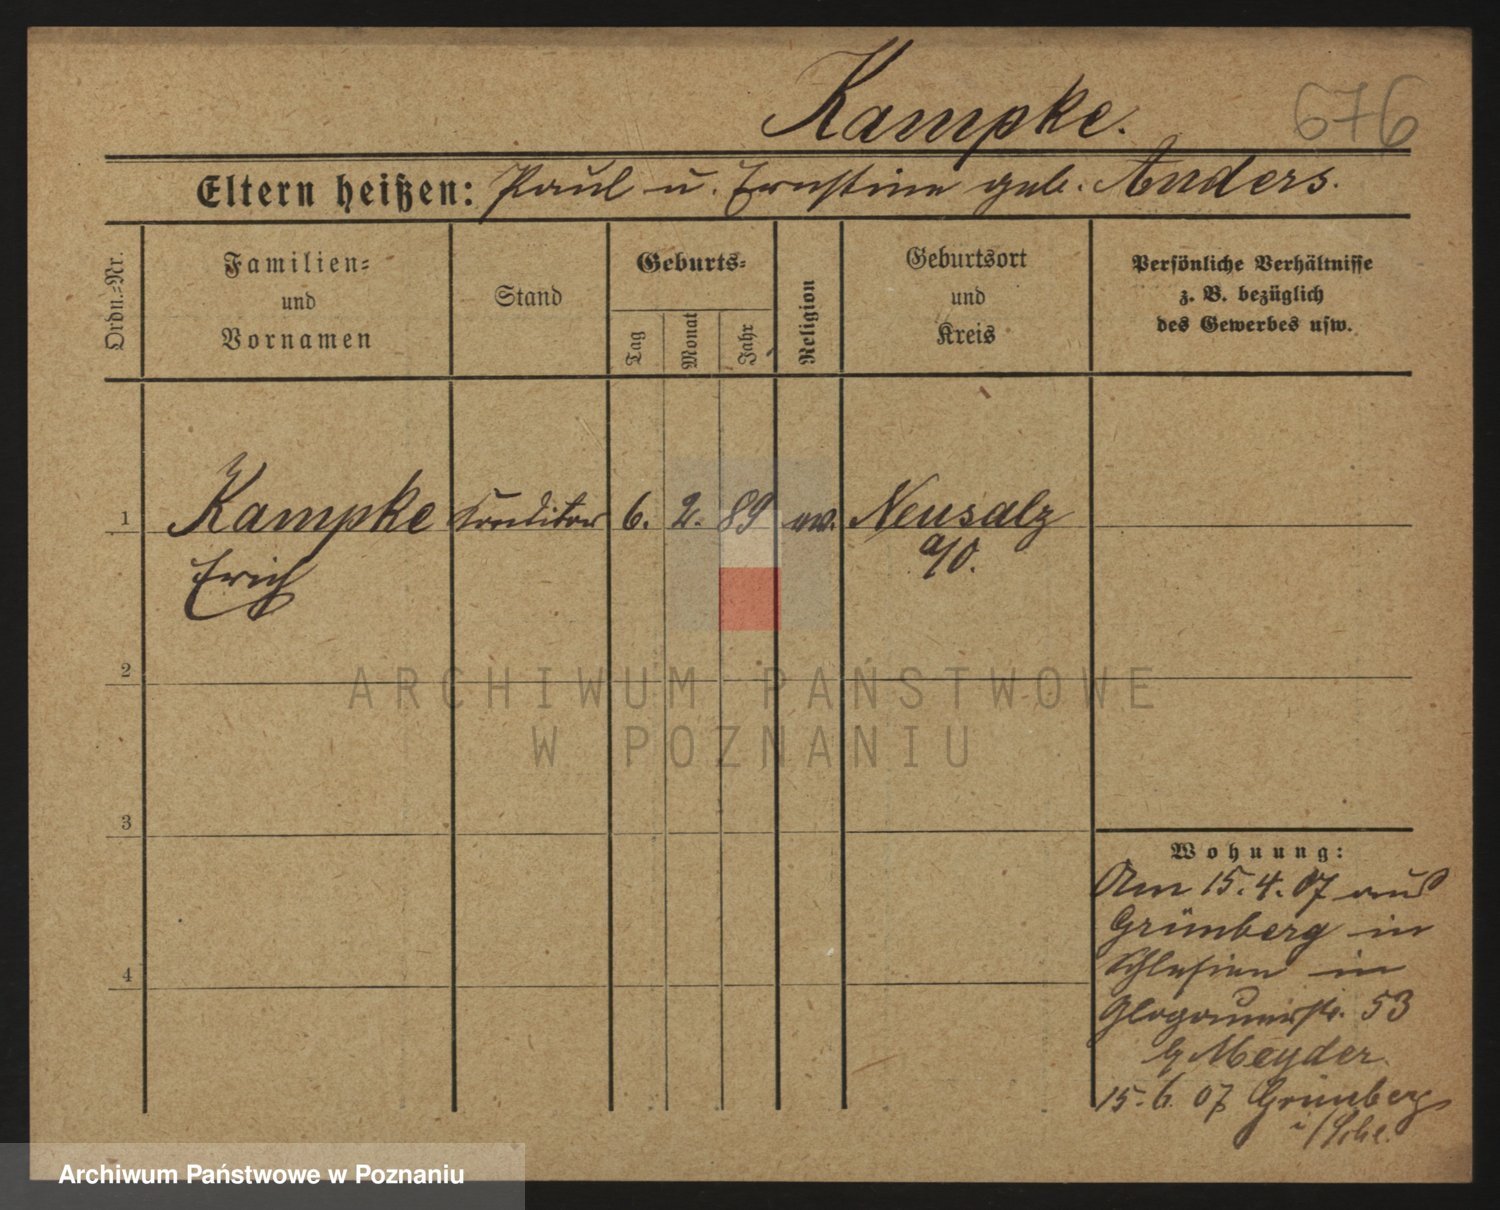 Kampke.
676
Eltern heißen: Paul u. Ernstine geb. Anders.
Ordn.-Nr.
Familien-
und
Vornamen
Stand
Geburts-
Tag
Monat
Jahr
Religion
Geburtsort
und
Kreis
Persönliche Verhältnisse
z. B. bezüglich
des Gewerbes usw.
1 Kampke Konditor 6. 2. 89 ev. Neusalz
Erich a/O.
2
ARCHIWUM PAŃSTWOWE
W POZNANIU
3
Wohnung:
Am 15.4.07 aus
Grünberg in
Schlesien in
Glogauerstr. 53
b/ Meyder
4
15.6.07 Grünberg
i/Schl.
Archiwum Państwowe w Poznaniu